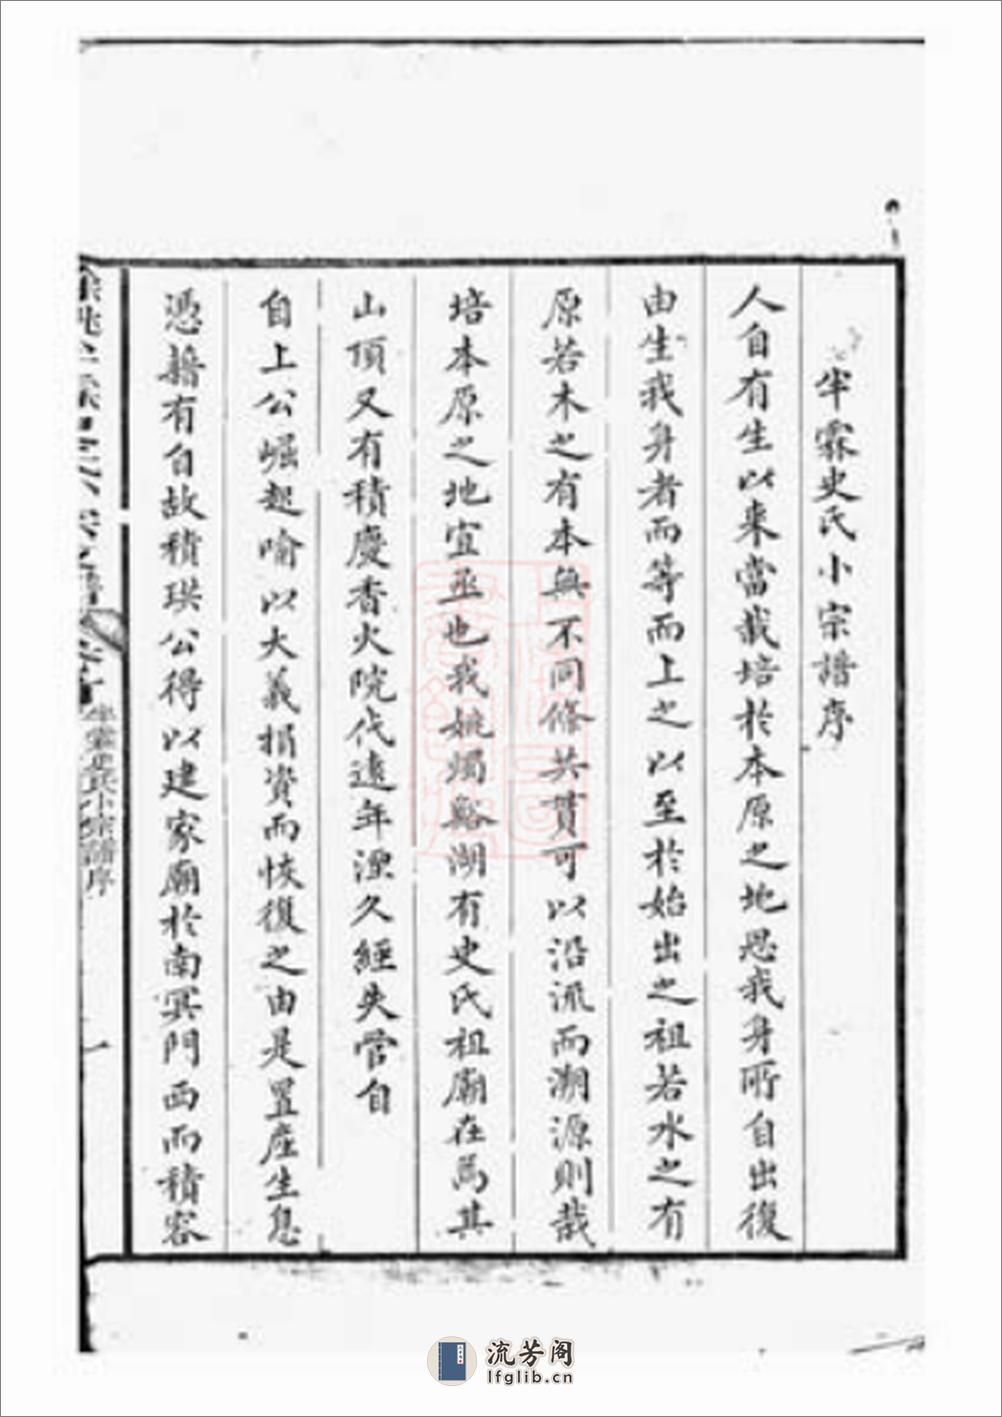 半霖史氏小宗譜序
人自有生以來當栽培於本原之地思我身所自出復
由生我身者而等而上之以至於始出之祖若水之有
原若木之有本無不同條共貫可以沿流而溯源則栽
培本原之地宜亟也我姚燭谿湖有史氏祖廟在焉其
山頂又有積慶香火院代遠年湮久經失管自
自上公崛起喻以大義捐資而恢復之由是置產生息
憑藉有自故積珙公得以建家廟於南冥門西而積容
半霖史氏小宗譜序
一
流芳阁
lfglib.cn